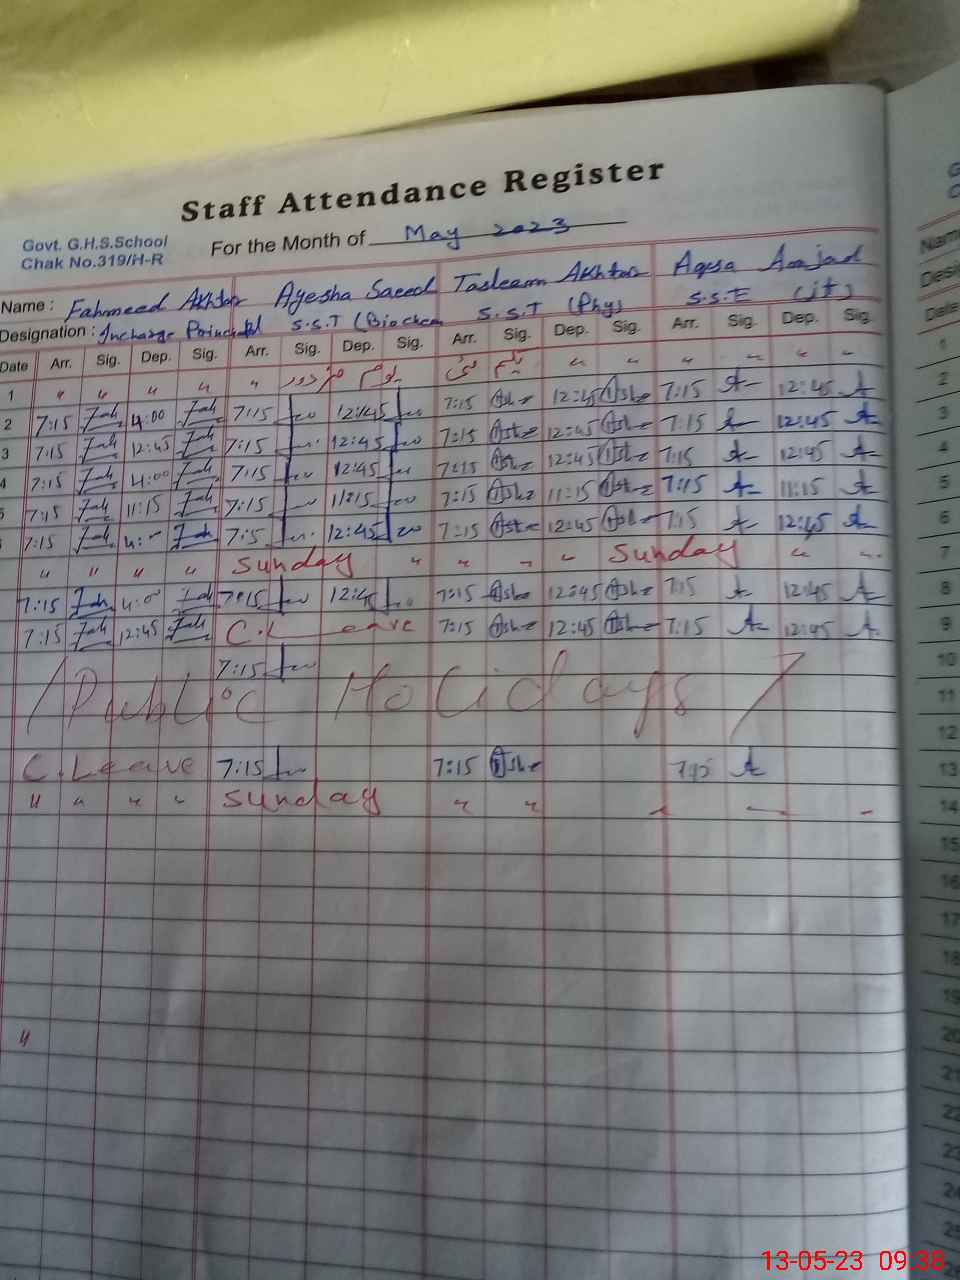 Staff Attendance Register
Govt. G.H.S.School
Chak No.319/H-R
For the Month of May 2023
Name : Fahmeed Akhtar Ayesha Saeed Tasleem Akhtar Aqsa Amjad
Designation : Incharge Principal S.S.T (Biochem S.S.T (Phy) S.S.E (it)
Date Arr. Sig. Dep. Sig. Arr. Sig. Dep. Sig. Arr. Sig. Dep. Sig. Arr. Sig. Dep. Sig.
1 " " " " " یوم مزدور " " " " " "
2 7:15 Fah 4:00 Fah 7:15 12:45 7:15 12:45 7:15 A 12:45 A
3 7:15 Fah 12:45 Fah 7:15 12:45 7:15 12:45 7:15 A 12:45 A
4 7:15 Fah 4:00 Fah 7:15 12:45 7:15 12:45 7:15 A 12:45 A
5 7:15 Fah 11:15 Fah 7:15 11:15 7:15 11:15 7:15 A 11:15 A
7:15 Fah 4:- Fah 7:15 12:45 7:15 12:45 7:15 A 12:45 A
" " " " Sunday " " " " Sunday " "
7:15 Fah 4:00 Fah 7:15 12:45 7:15 12:45 7:15 A 12:45 A
7:15 Fah 12:45 Fah C.Leave 7:15 12:45 7:15 A 12:45 A
7:15
Public Holidays
C.Leave 7:15 7:15 7:15 A
" " " " Sunday " "
"
Name
Date
1
2
3
4
5
6
7
8
9
10
11
12
13
14
15
16
17
18
19
20
21
22
23
24
25
13-05-23 09:38